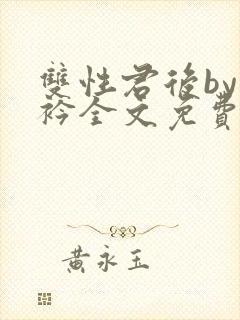 雙性君後by
衿全文免費
黃永玉